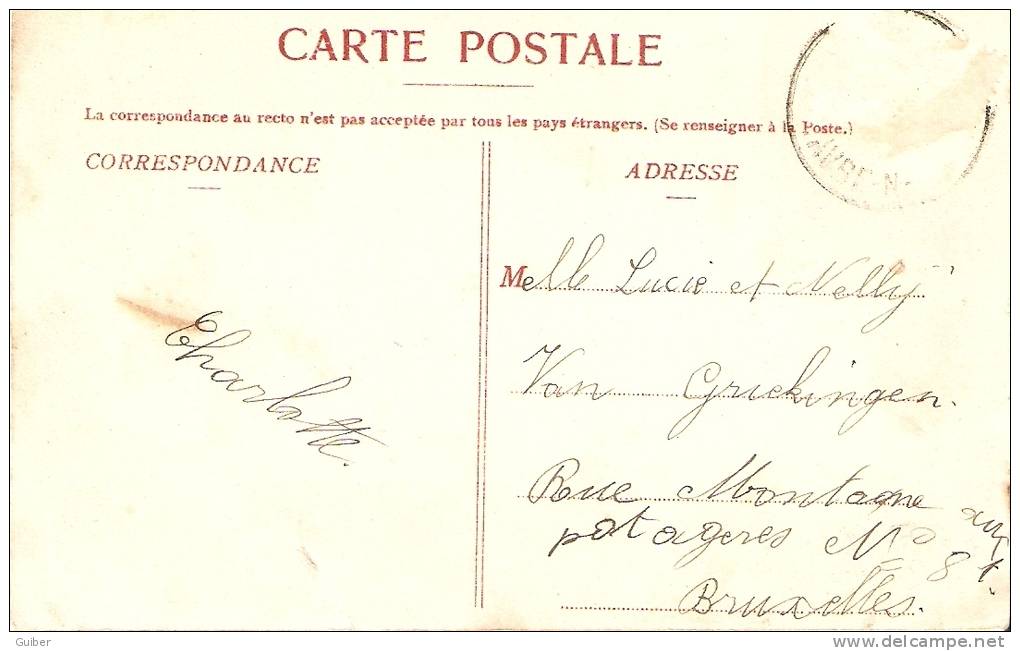 CARTE POSTALE
La correspondance au recto n'est pas acceptée par tous les pays étrangers. (Se renseigner à la Poste.)
CORRESPONDANCE
ADRESSE
Charlotte.
Melle Lucie et Nelly
Van Grickingen.
Rue Montagne aux
potageres No 81.
Bruxelles.
Guiber
www.delcampe.net